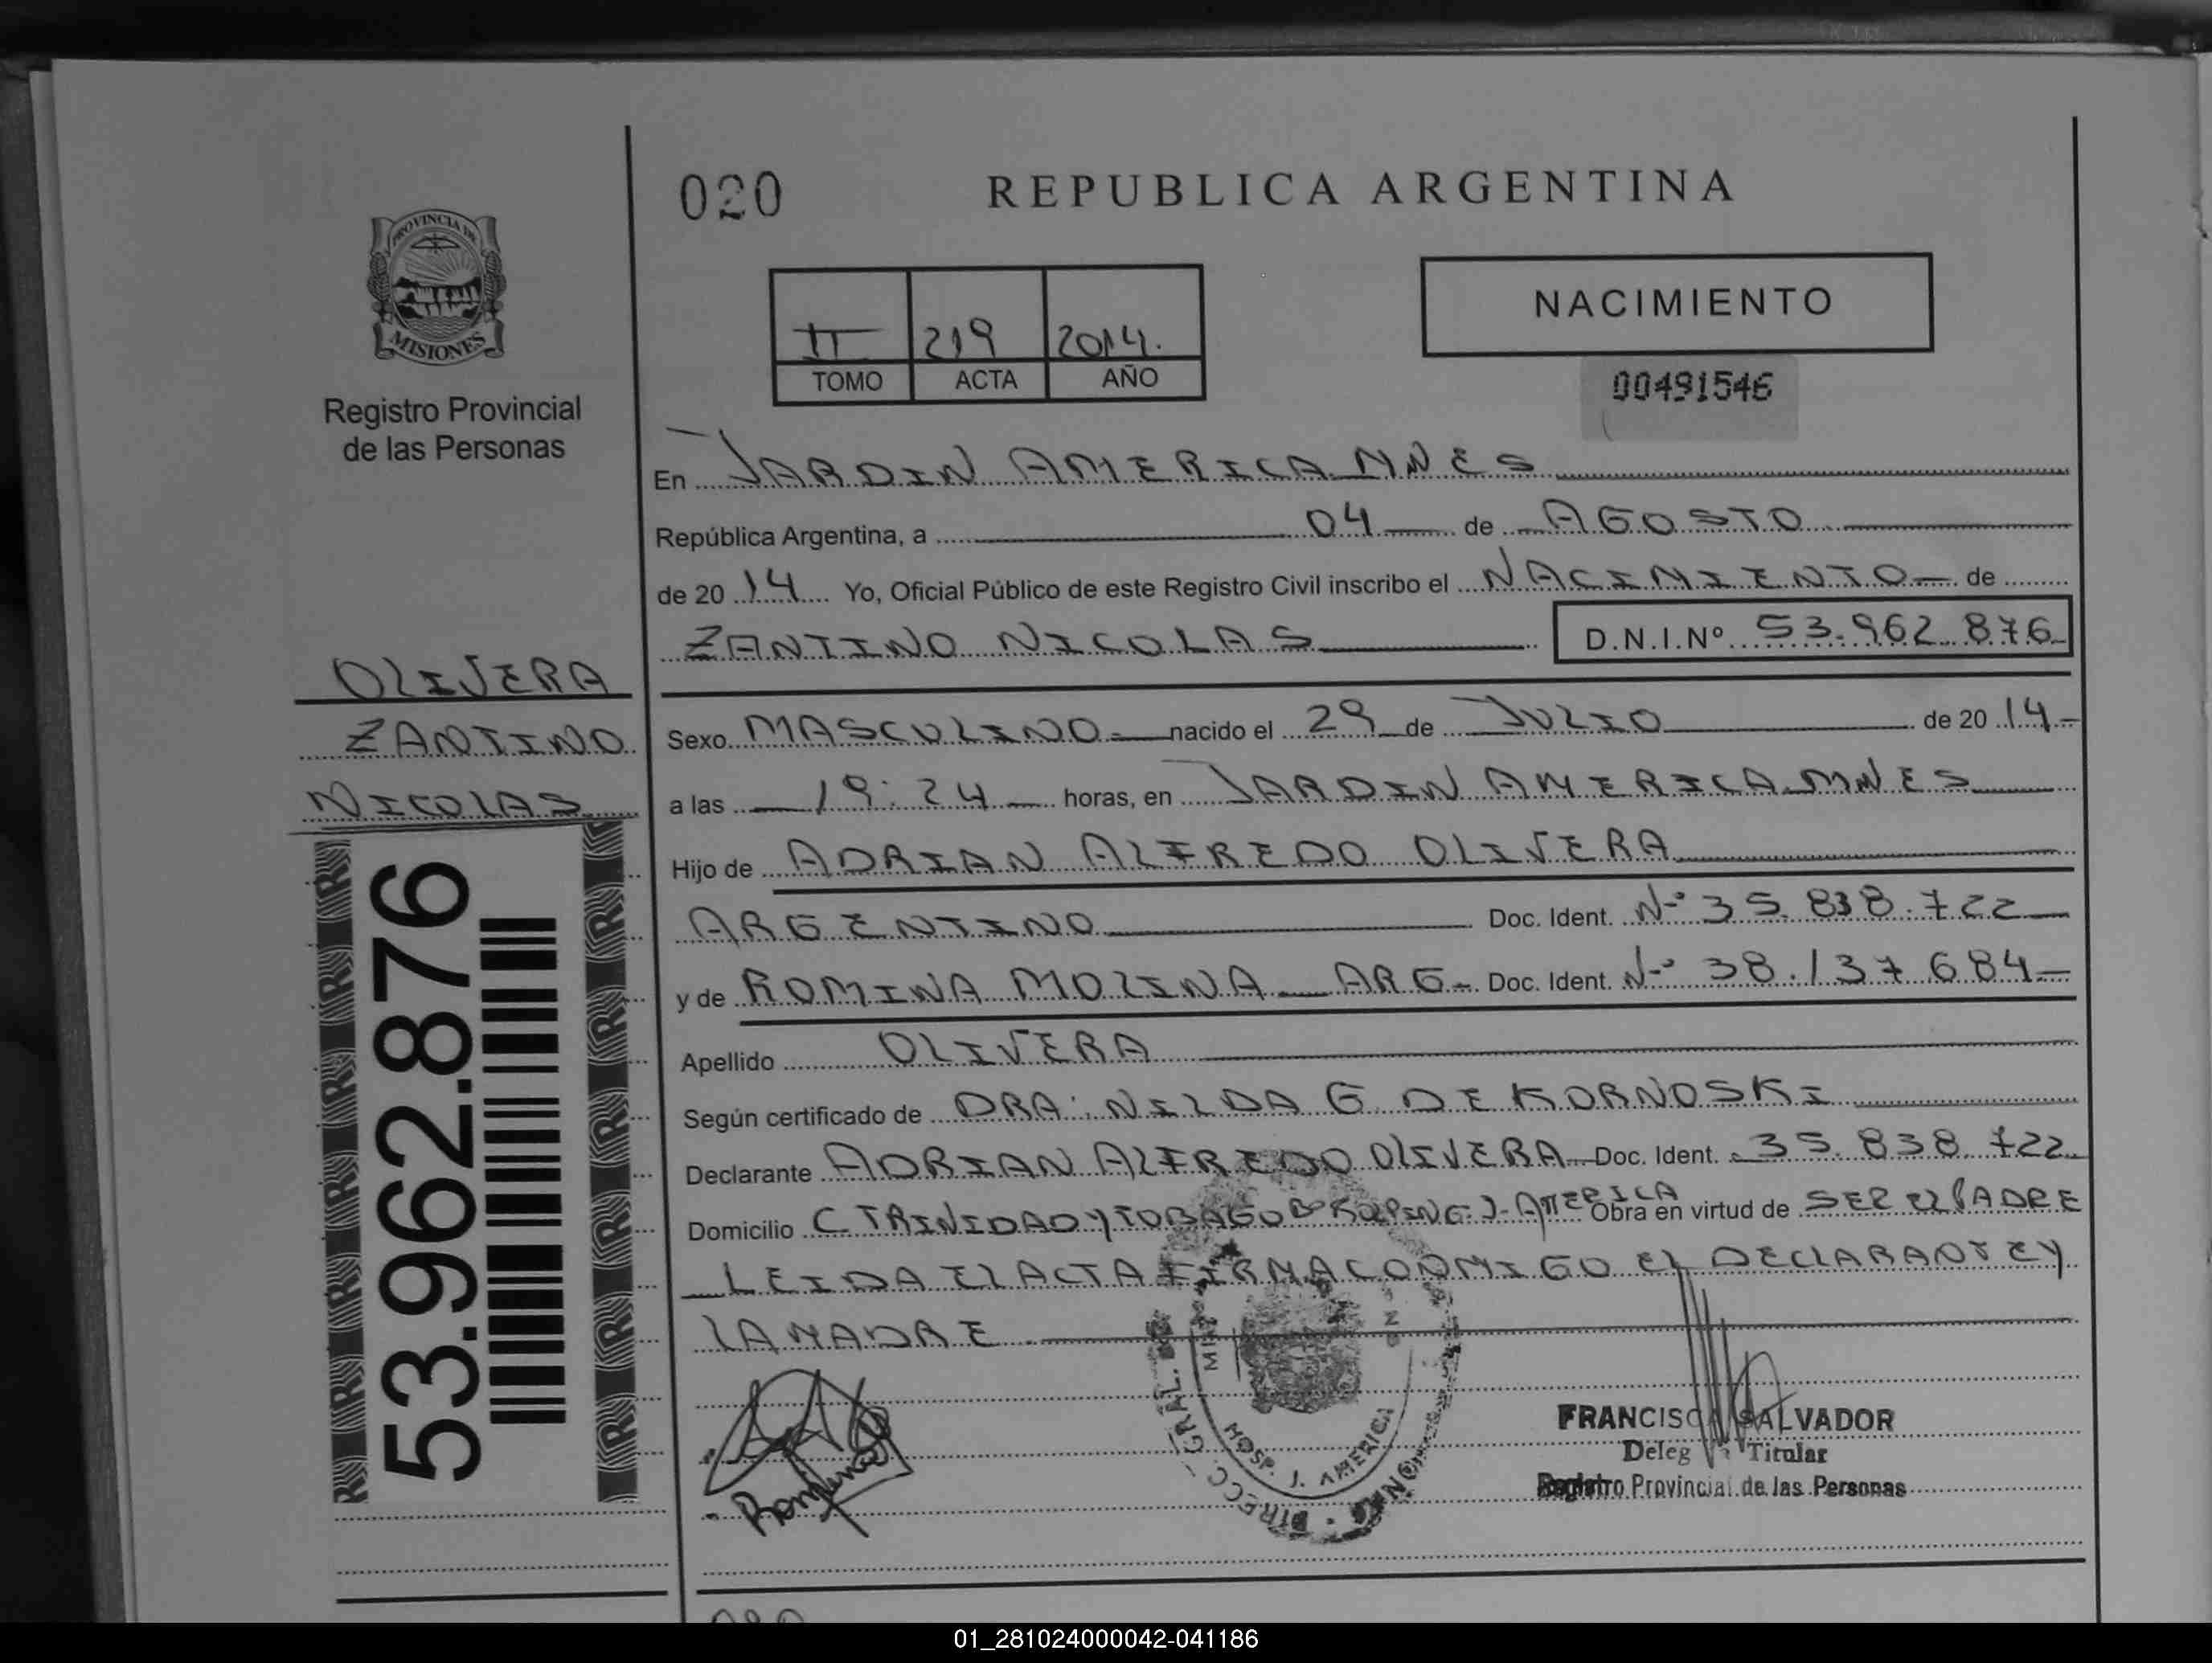 020
REPUBLICA ARGENTINA
PROVINCIA DE
MISIONES
Registro Provincial
de las Personas
II 219 2014.
TOMO ACTA AÑO
NACIMIENTO
00491546
En JARDIN AMERICA MNES
República Argentina, a 04 de AGOSTO
de 20 14 Yo, Oficial Público de este Registro Civil inscribo el NACIMIENTO de
ZANTINO NICOLAS D.N.I.Nº 53.962.876
OLIVERA
ZANTINO
NICOLAS
53.962.876
Sexo MASCULINO nacido el 29 de JULIO de 20 14
a las 19:24 horas, en JARDIN AMERICA MNES
Hijo de ADRIAN ALFREDO OLIVERA
ARGENTINO Doc. Ident. Nº 35.838.722
y de ROMINA MOLINA ARG Doc. Ident. Nº 38.137.684
Apellido OLIVERA
Según certificado de DRA. NILDA G DE KORNOSKI
Declarante ADRIAN ALFREDO OLIVERA Doc. Ident. 35.838.722
Domicilio C. TRINIDAD Y TOBAGO Bº J. AMERICA Obra en virtud de SER EL PADRE
LEIDA EL ACTA FIRMA CONMIGO EL DECLARANTE Y
LA MADRE
Romina
DIRECC. GRAL.
HOSP. J. AMERICA
FRANCISCA SALVADOR
Deleg Titular
Registro Provincial de las Personas
01_281024000042-041186